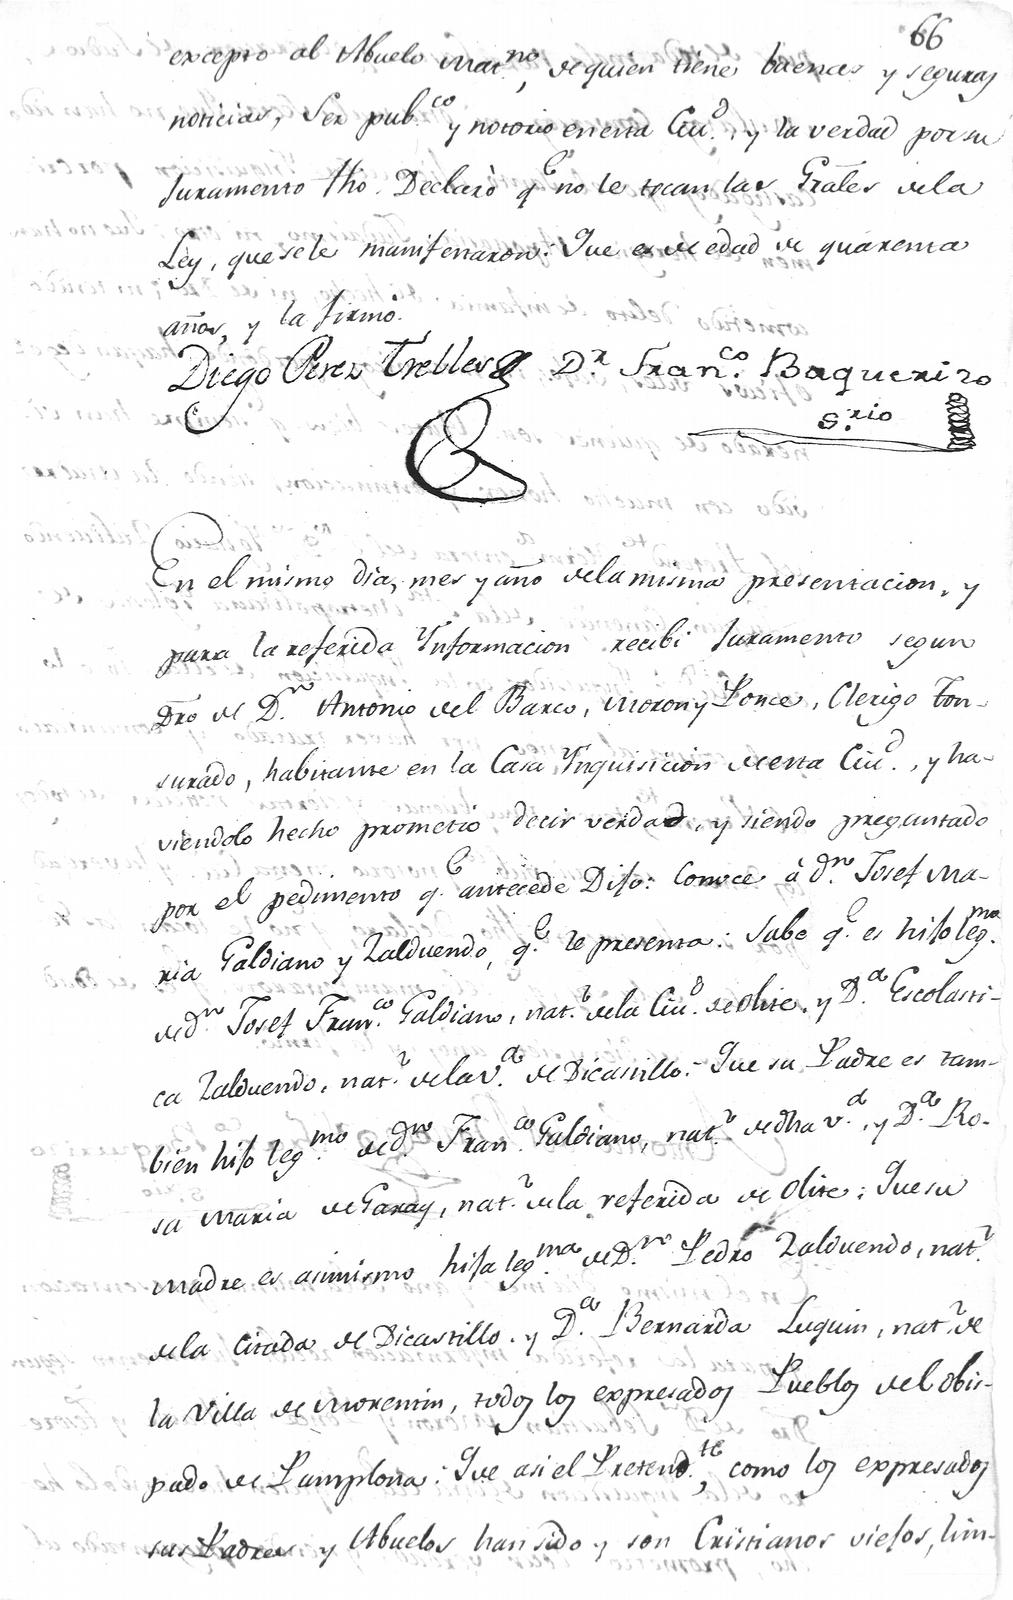 66
excepto al Abuelo Mat.no, de quien tiene buenas y seguras
noticias, Ser pub.co y notorio en esta Ciu.d, y la verdad por su
Juramento fho. Declarò q.e no le tocan las Grãles de la
Ley, que se le manifestaron: Que es de edad de quarenta
años, y la firmó.
Diego Perez Trelles D.r Fran.co Baquerizo
S.rio
En el mismo dia, mes y año de la misma presentacion, y
para la referida Ynformacion recibi Juramento segun
Dro de D.n Antonio del Barco, Moron y Ponce, Clerigo Ton-
surado, habitante en la Casa Ynquisicion de esta Ciu.d, y ha-
viendolo hecho prometió decir verdad, y siendo preguntado
por el pedimento q.e antecede Dijo: Conoce à d.n Josef Ma-
ria Galdiano y Zalduendo, q.e le presenta: Sabe q.e es hijo leg.mo
de d.n Josef Fran.co Galdiano, nat.l de la Ciu.d de Olite, y D.a Escolasti-
ca Zalduendo, nat.l de la v.a de Dicastillo: Que su Padre es tam-
bien hijo leg.mo de d.n Fran.co Galdiano, nat.l de dha v.a, y D.a Ro-
sa Maria de Garay, nat.l de la referida de Olite: Que su
Madre es asimismo hija leg.ma de D.n Pedro Zalduendo, nat.l
de la Citada de Dicastillo, y D.a Bernarda Luquin, nat.l de
la Villa de Morentin, todos los expresados Pueblos del Obis-
pado de Pamplona: Que asi el Pretend.te, como los expresados
sus Padres y Abuelos han sido y son Cristianos viejos, lim-